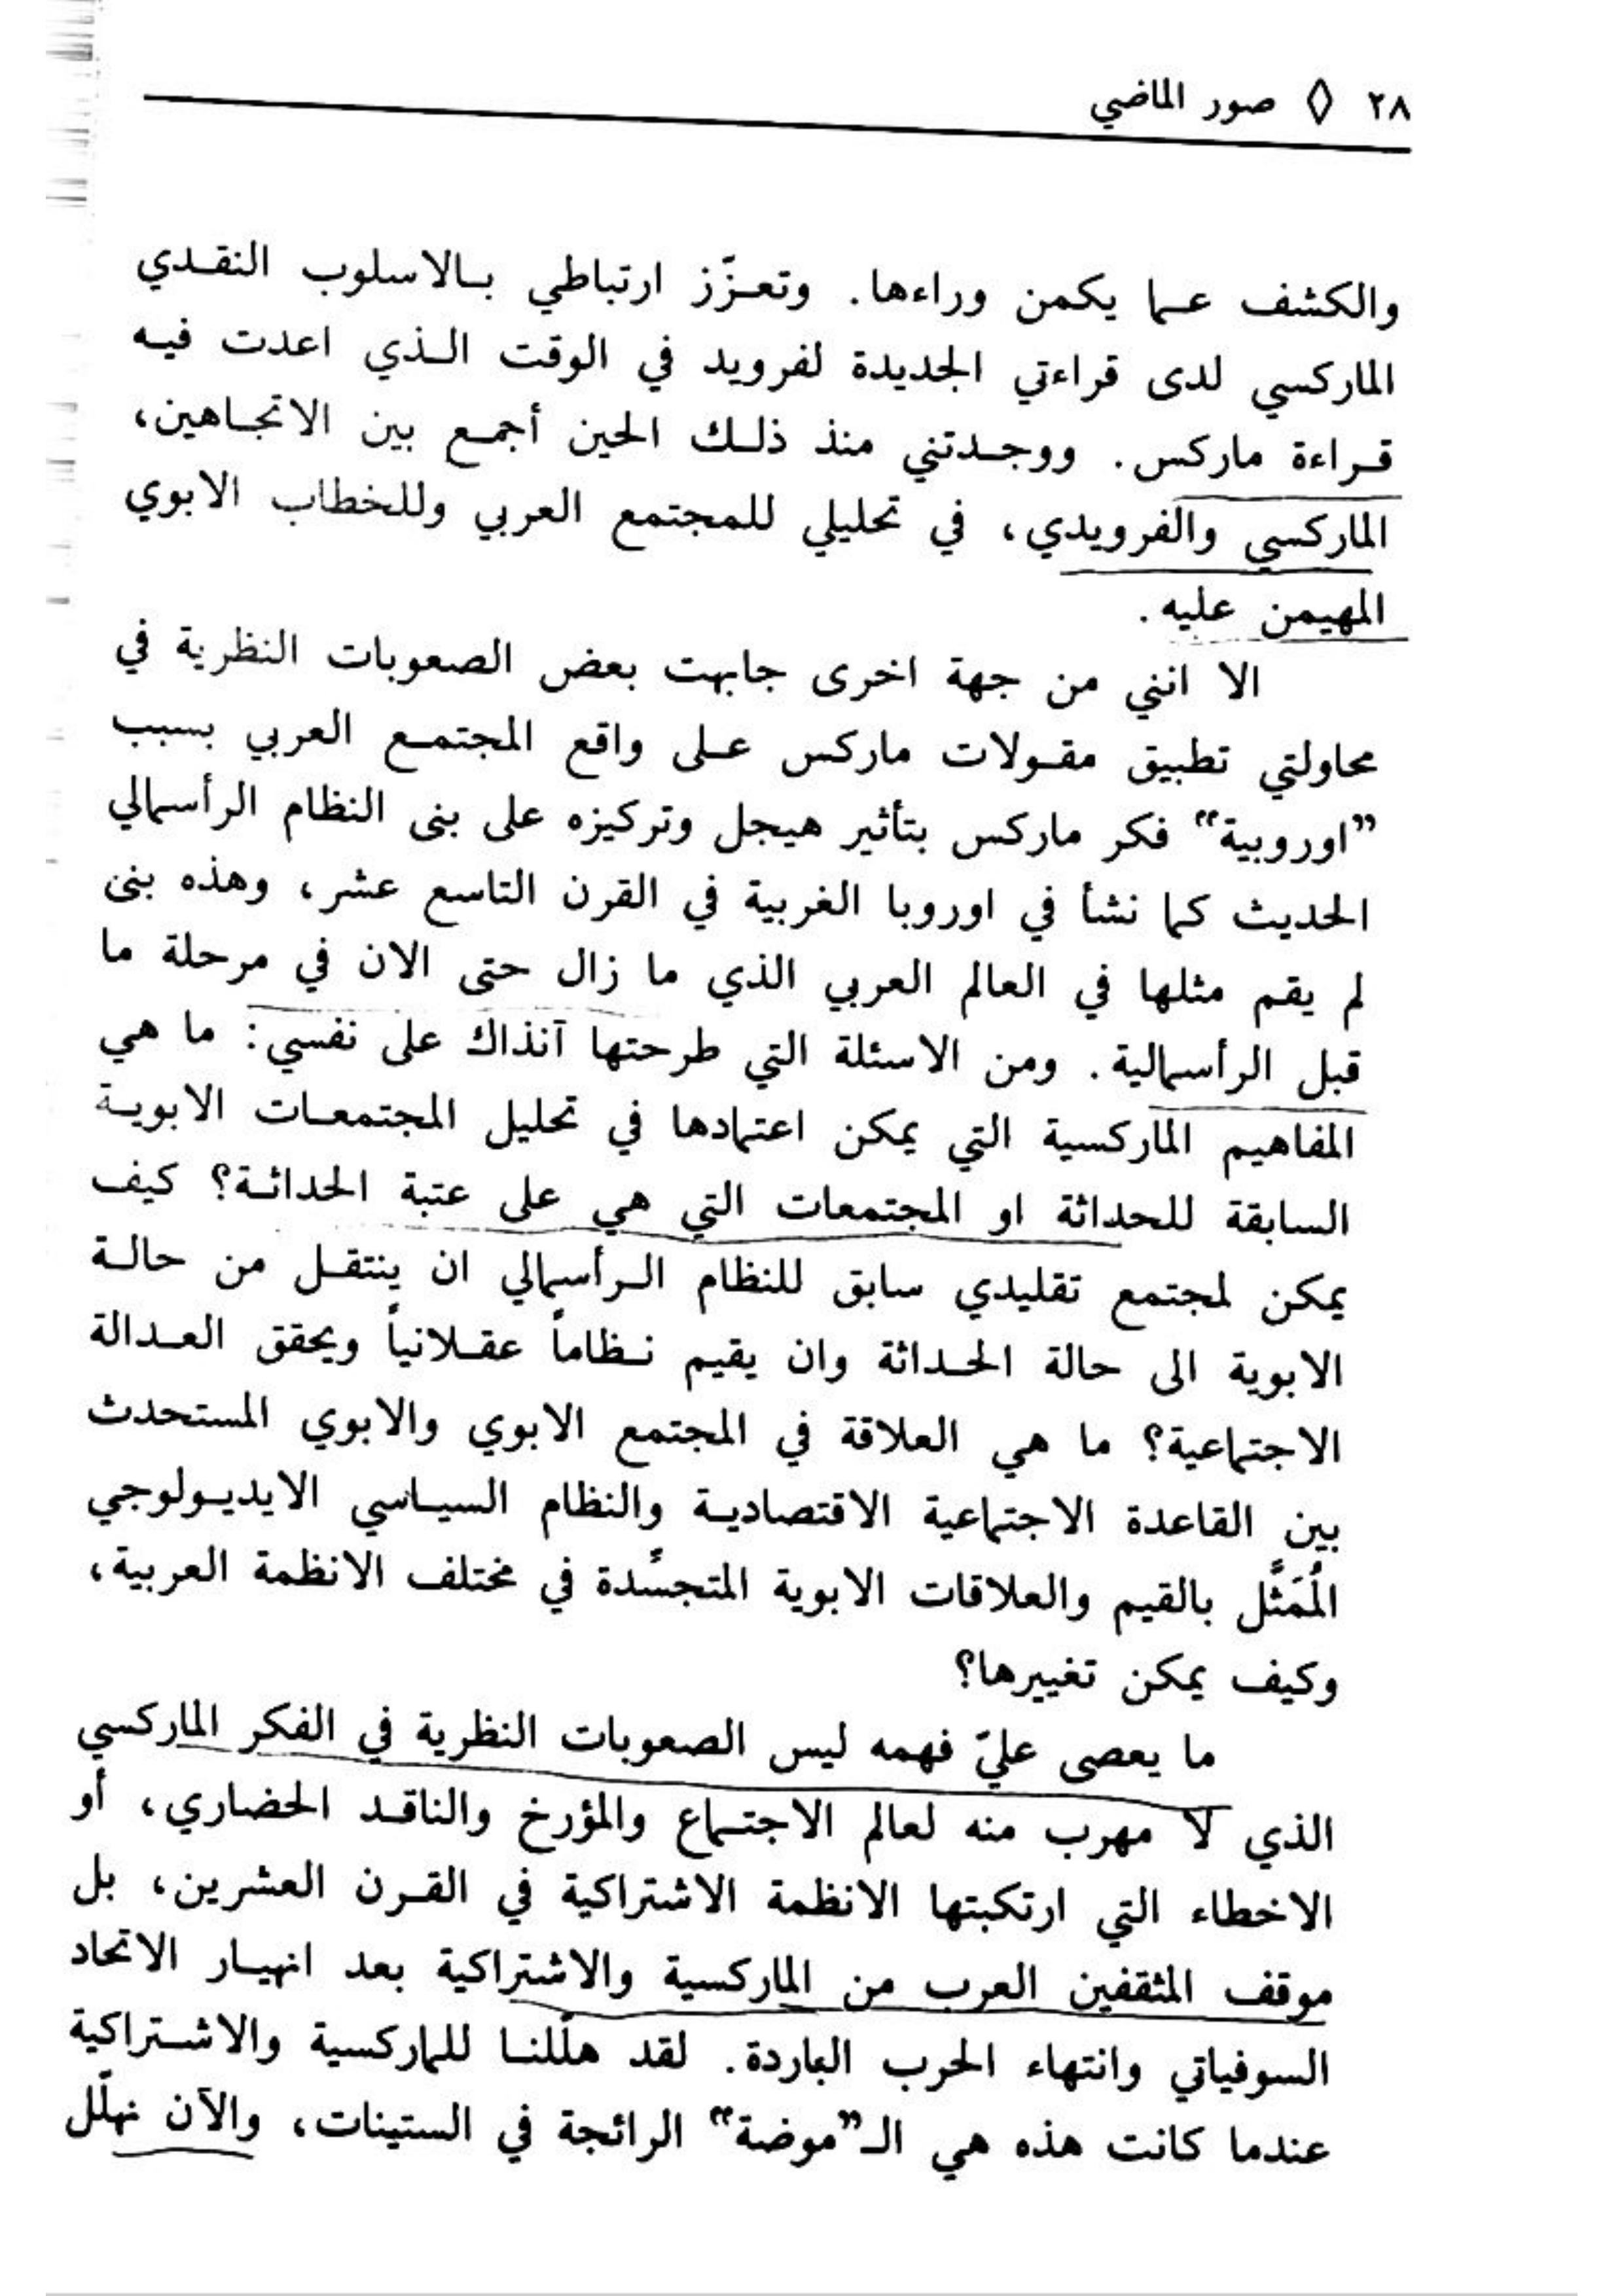 ٢٨ ◊ صور الماضي
والكشف عما يكمن وراءها. وتعزّز ارتباطي بالاسلوب النقدي
الماركسي لدى قراءتي الجديدة لفرويد في الوقت الذي اعدت فيه
قراءة ماركس. ووجدتني منذ ذلك الحين أجمع بين الاتجاهين،
الماركسي والفرويدي، في تحليلي للمجتمع العربي وللخطاب الابوي
المهيمن عليه.
الا انني من جهة اخرى جابهت بعض الصعوبات النظرية في
محاولتي تطبيق مقولات ماركس على واقع المجتمع العربي بسبب
”اوروبية“ فكر ماركس بتأثير هيجل وتركيزه على بنى النظام الرأسمالي
الحديث كما نشأ في اوروبا الغربية في القرن التاسع عشر، وهذه بنى
لم يقم مثلها في العالم العربي الذي ما زال حتى الان في مرحلة ما
قبل الرأسمالية. ومن الاسئلة التي طرحتها آنذاك على نفسي: ما هي
المفاهيم الماركسية التي يمكن اعتمادها في تحليل المجتمعات الابوية
السابقة للحداثة او المجتمعات التي هي على عتبة الحداثة؟ كيف
يمكن لمجتمع تقليدي سابق للنظام الرأسمالي ان ينتقل من حالة
الابوية الى حالة الحداثة وان يقيم نظاماً عقلانياً ويحقق العدالة
الاجتماعية؟ ما هي العلاقة في المجتمع الابوي والابوي المستحدث
بين القاعدة الاجتماعية الاقتصادية والنظام السياسي الايديولوجي
المُمَثَّل بالقيم والعلاقات الابوية المتجسِّدة في مختلف الانظمة العربية،
وكيف يمكن تغييرها؟
ما يعصى عليّ فهمه ليس الصعوبات النظرية في الفكر الماركسي
الذي لا مهرب منه لعالم الاجتماع والمؤرخ والناقد الحضاري، أو
الاخطاء التي ارتكبتها الانظمة الاشتراكية في القرن العشرين، بل
موقف المثقفين العرب من الماركسية والاشتراكية بعد انهيار الاتحاد
السوفياتي وانتهاء الحرب الباردة. لقد هلّلنا للماركسية والاشتراكية
عندما كانت هذه هي الـ”موضة“ الرائجة في الستينات، والآن نهلّل